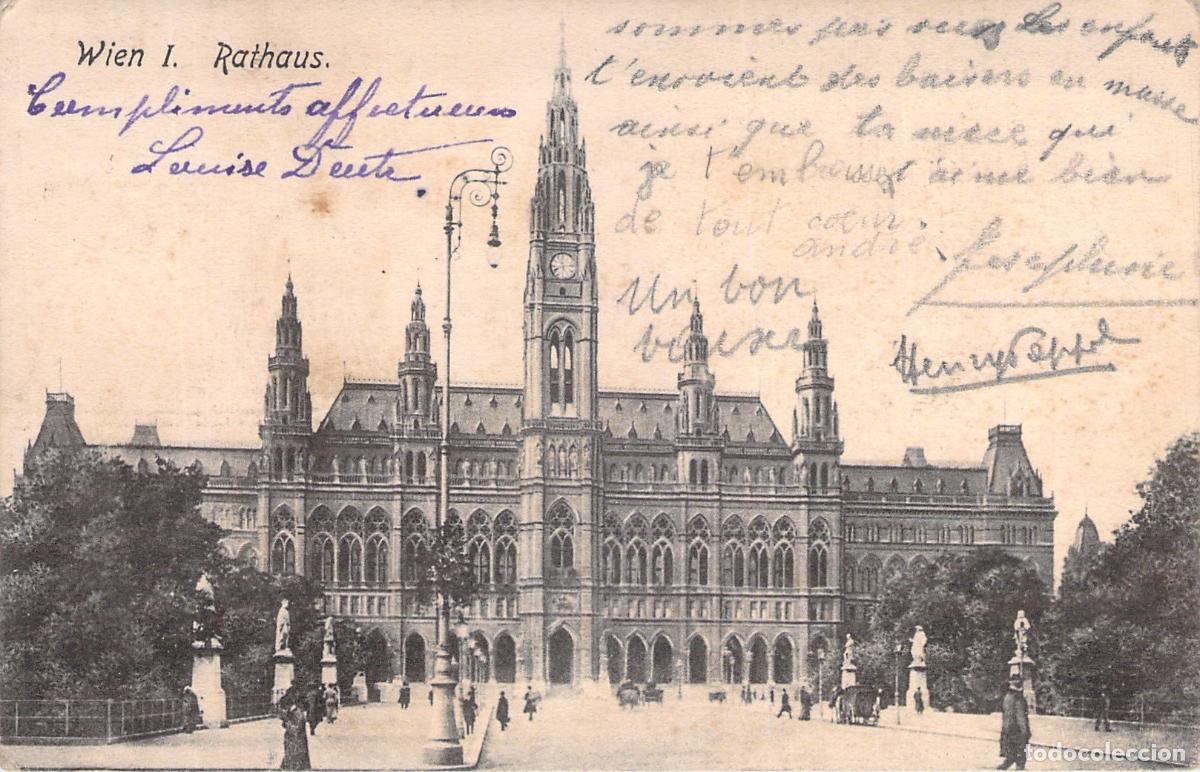 Wien I. Rathaus.
Compliments affectueux
Louise
sommes pas Les enfants
t'envoient des baisers en masse
ainsi que ta niece qui
je t'embrasse t'aime bien
de tout cœur
andré.
Josephine
Un bon
baiser
Henry
todocoleccion